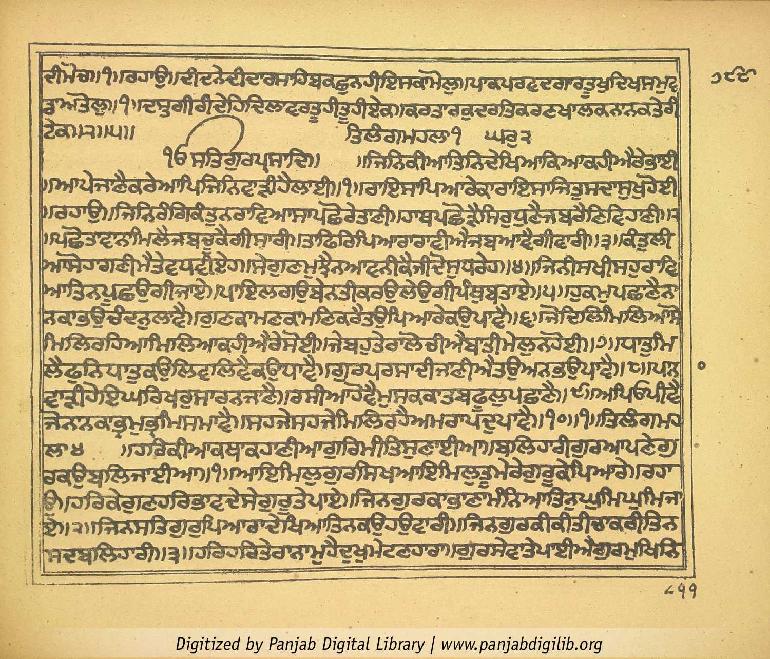 ੭੮੯
ਦੀਮੋਚ॥੧॥ਰਹਾਉ॥ਦੀਦਨੇਦੀਦਾਰਸਾਹਿਬਕਛੁਨਹੀਇਸਕਾਮੋਲੁ॥ਪਾਕਪਰਵਦਗਾਰਤੂਖੁਦਿਖਸਮੁਵ
ਡਾਅਤੋਲੁ॥੧॥ਦਸ੍ਤਗੀਰੀਦੇਹਿਦਿਲਾਵਰਤੂਹੀਤੂਹੀਏਕ॥ਕਰਤਾਰਕੁਦਰਤਿਕਰਣਖਾਲਕਨਾਨਕਤੇਰੀ
ਟੇਕ॥੨॥੫॥ ਤਿਲੰਗਮਹਲਾ੧ ਘਰੁ੨
ੴਸਤਿਗੁਰਪ੍ਰਸਾਦਿ॥ ॥ਜਿਨਿਕੀਆਤਿਨਿਦੇਖਿਆਕਿਆਕਹੀਐਰੇਭਾਈ
॥ਆਪੇਜਾਣੈਕਰੇਆਪਿਜਿਨਿਵਾੜੀਹੈਲਾਈ॥੧॥ਰਾਇਸਾਪਿਆਰੇਕਾਰਾਇਸਾਜਿਤੁਸਦਾਸੁਖੁਹੋਈ
॥ਰਹਾਉ॥ਜਿਨਿਰੰਗਿਕੰਤੁਨਰਾਵਿਆਸਾਪਛੋਰੇਤਾਣੀ॥ਹਾਥਪਛੋੜੈਸਿਰੁਧੁਣੈਜਬਰੈਣਿਵਿਹਾਣੀ॥੨
॥ਪਛੋਤਾਵਾਨਾਮਿਲੈਜਬਚੂਕੈਗੀਸਾਰੀ॥ਤਾਫਿਰਿਪਿਆਰਾਰਾਵੀਐਜਬਆਵੈਗੀਵਾਰੀ॥੩॥ਕੰਤੁਲੀ
ਆਸੋਹਾਗਣੀਮੈਤੇਵਧਵੀਏਹ॥ਸੇਗੁਣਮੁਝੈਨਆਵਨੀਕੈਜੀਦੋਸੁਧਰੇਹ॥੪॥ਜਿਨੀਸਖੀਸਹੁਰਾਵਿ
ਆਤਿਨਪੂਛਉਗੀਜਾਏ॥ਪਾਇਲਗਉਬੇਨਤੀਕਰਉਲੇਉਗੀਪੰਥੁਬਤਾਏ॥੫॥ਹੁਕਮੁਪਛਾਣੈਨਾ
ਨਕਾਭਉਚੰਦਨੁਲਾਵੈ॥ਗੁਣਕਾਮਣਕਾਮਣਿਕਰੈਤਉਪਿਆਰੇਕਉਪਾਵੈ॥੬॥ਜੋਦਿਲਿਮਿਲਿਆਸੁ
ਮਿਲਿਰਹਿਆਮਿਲਿਆਕਹੀਐਰੇਸੋਈ॥ਜੇਬਹੁਤੇਰਾਲੋਚੀਐਬਾਤੀਮੇਲੁਨਹੋਈ॥੭॥ਧਾਤੁਮਿ
ਲੈਫੁਨਿਧਾਤੁਕਉਲਿਵਲਿਵੈਕਉਧਾਵੈ॥ਗੁਰਪਰਸਾਦੀਜਾਣੀਐਤਉਅਨਭਉਪਾਵੈ॥੮॥ਪਾਨਾ
ਵਾੜੀਹੋਇਘਰਿਖਰੁਸਾਰਨਜਾਣੈ॥ਰਸੀਆਹੋਵੈਮੁਸਕਕਾਤਬਫੂਲੁਪਛਾਣੈ॥੯॥ਅਪਿਓਪੀਵੈ
ਜੋਨਾਨਕਾਭ੍ਰਮੁਭ੍ਰਮਿਸਮਾਵੈ॥ਸਹਜੇਸਹਜੇਮਿਲਿਰਹੈਅਮਰਾਪਦੁਪਾਵੈ॥੧੦॥੧॥ਤਿਲੰਗਮਹ
ਲਾ੪ ॥ਹਰਿਕੀਆਕਥਾਕਹਾਣੀਆਗੁਰਿਮੀਤਿਸੁਣਾਈਆ॥ਬਲਿਹਾਰੀਗੁਰਆਪਣੇਗੁ
ਰਕਉਬਲਿਜਾਈਆ॥੧॥ਆਇਮਿਲੁਗੁਰਸਿਖਆਇਮਿਲੁਤੂਮੇਰੇਗੁਰੂਕੇਪਿਆਰੇ॥ਰਹਾ
ਉ॥ਹਰਿਕੇਗੁਣਹਰਿਭਾਵਦੇਸੇਗੁਰੂਤੇਪਾਏ॥ਜਿਨਗੁਰਕਾਭਾਣਾਮੰਨਿਆਤਿਨਘੁਮਿਘੁਮਿਜਾ
ਏ॥੨॥ਜਿਨਸਤਿਗੁਰੁਪਿਆਰਾਦੇਖਿਆਤਿਨਕਉਹਉਵਾਰੀ॥ਜਿਨਗੁਰਕੀਕੀਤੀਚਾਕਰੀਤਿਨ
ਸਦਬਲਿਹਾਰੀ॥੩॥ਹਰਿਹਰਿਤੇਰਾਨਾਮੁਹੈਦੁਖਮੇਟਣਹਾਰਾ॥ਗੁਰਸੇਵਾਤੇਪਾਈਐਗੁਰਮੁਖਿਨਿ
੮੧੧
Digitized by Panjab Digital Library | www.panjabdigilib.org